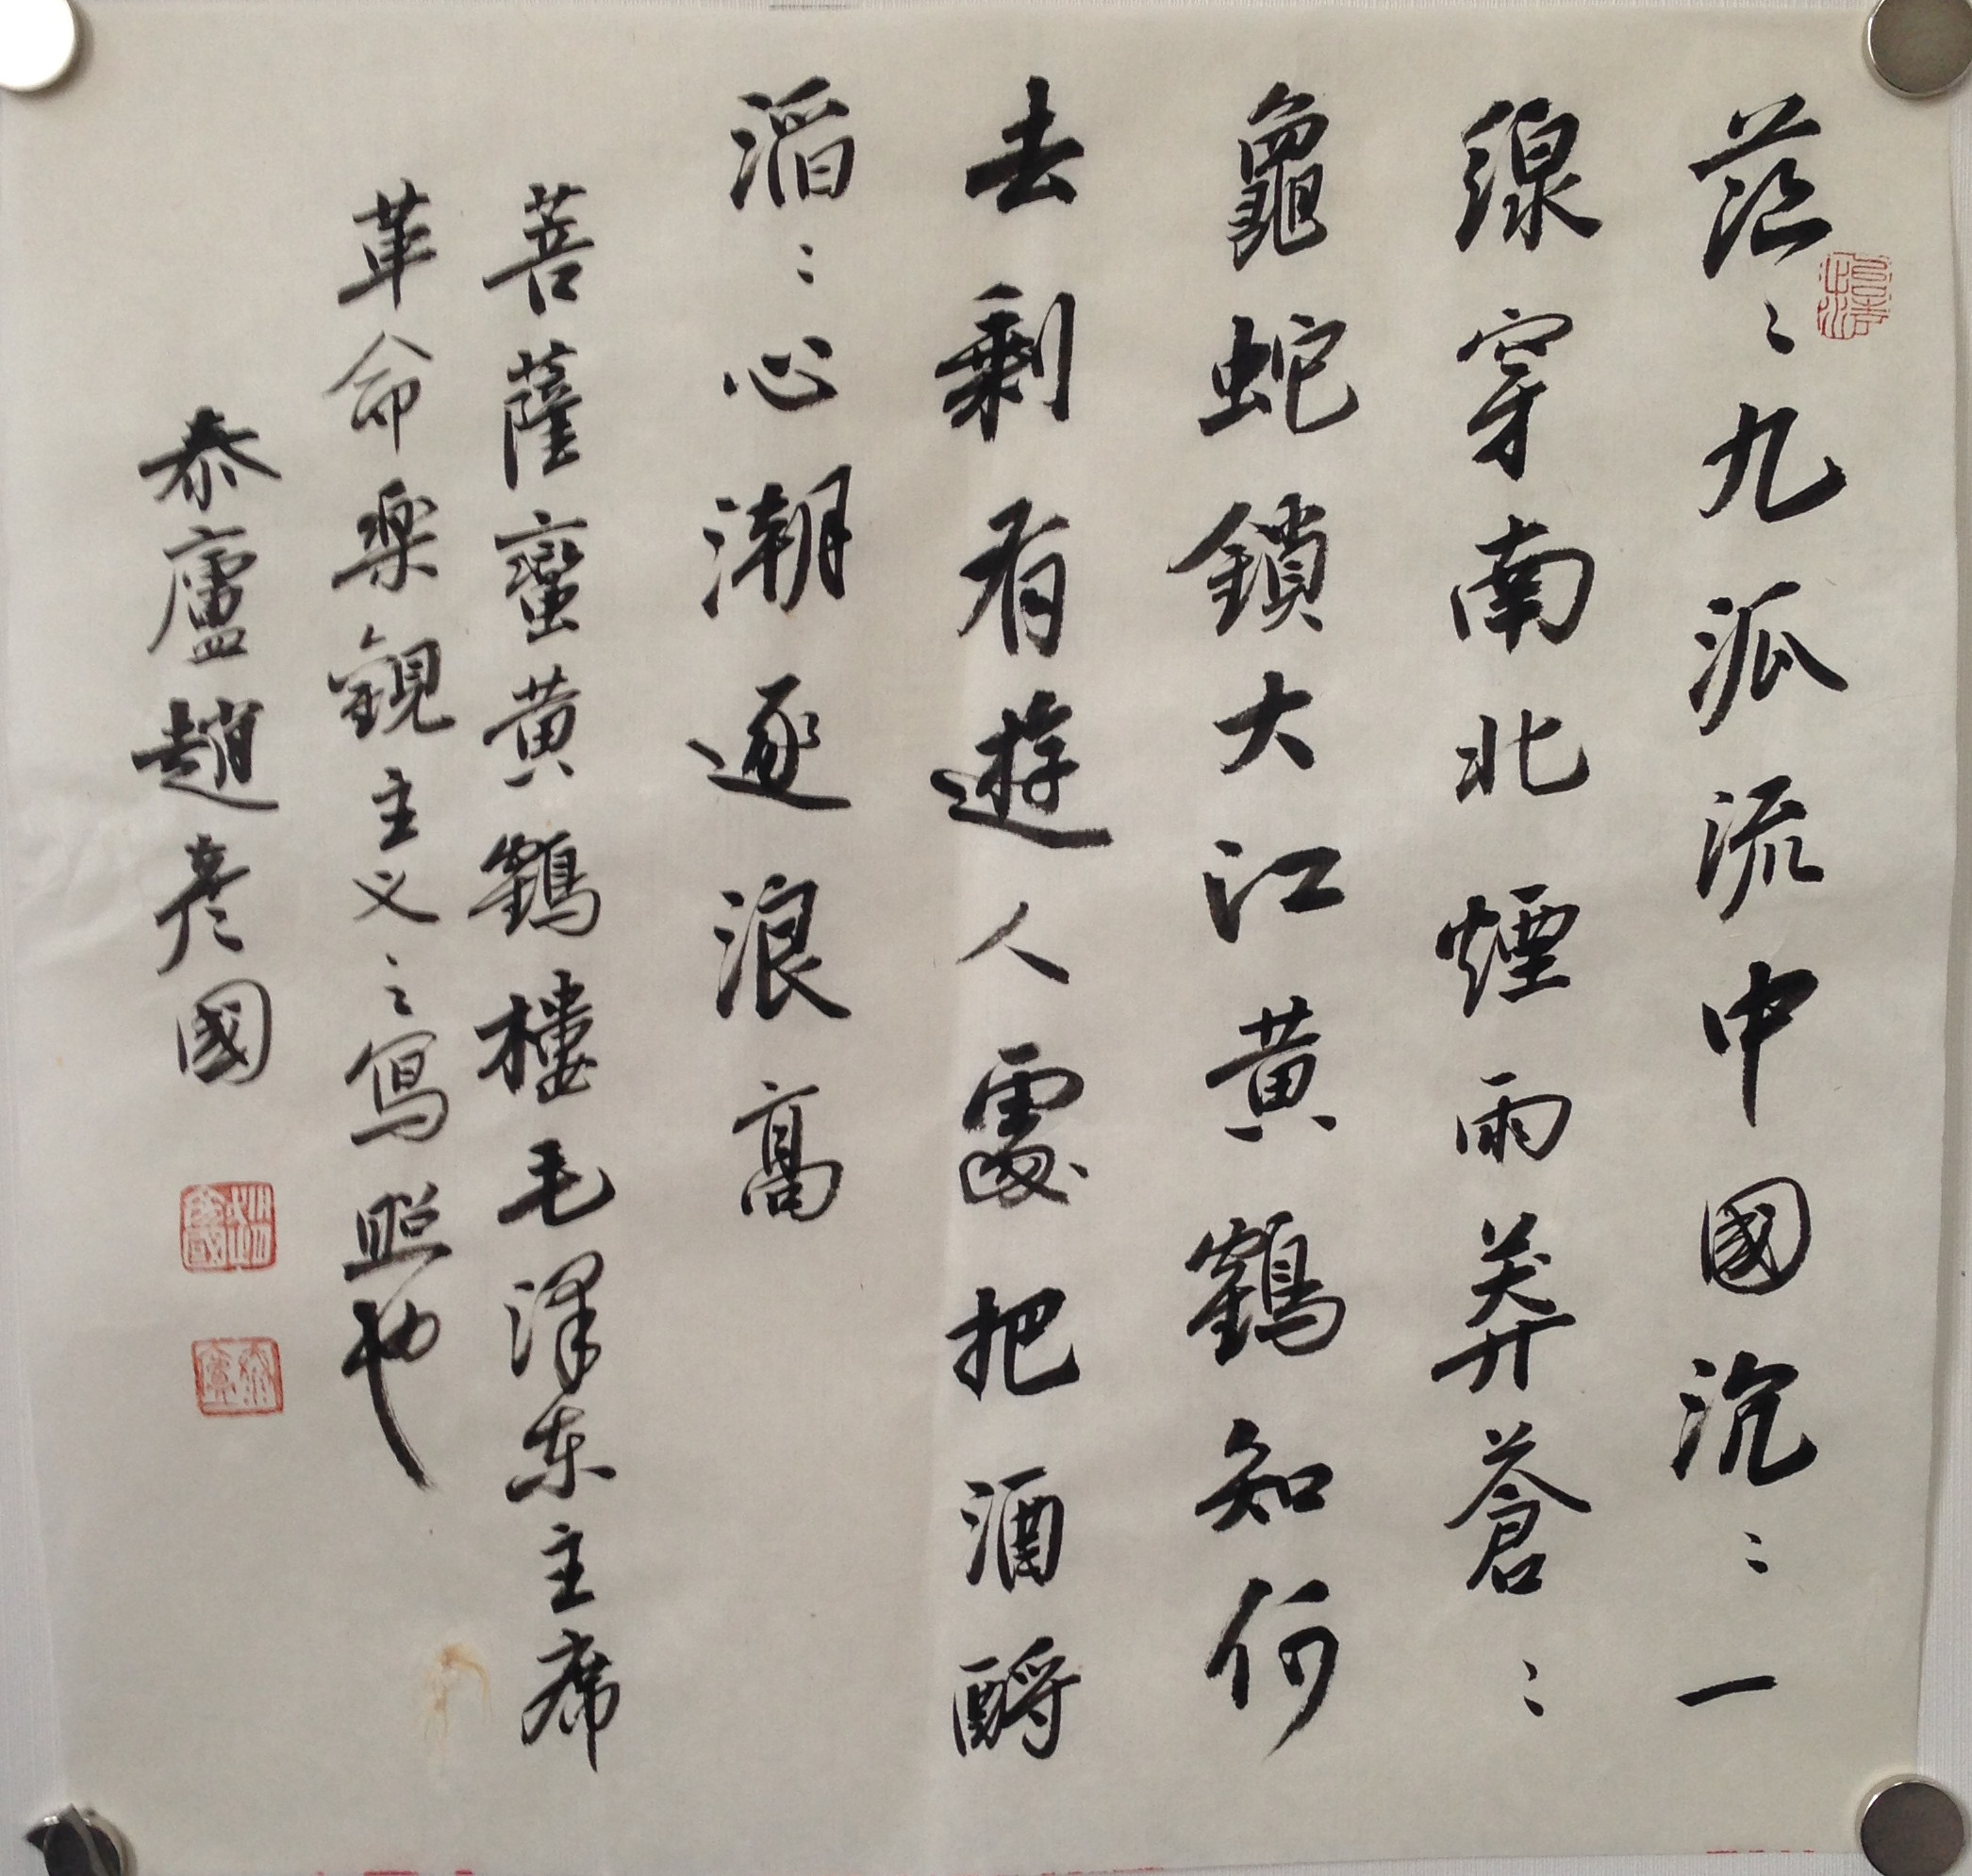 茫〻九派流中國沉〻一
線穿南北煙雨莽蒼〻
龜蛇鎖大江黄鶴知何
去剩有遊人處把酒酹
滔〻心潮逐浪高
菩薩蠻黄鶴樓毛澤东主席
革命樂觀主义之寫照也
泰廬趙彥國